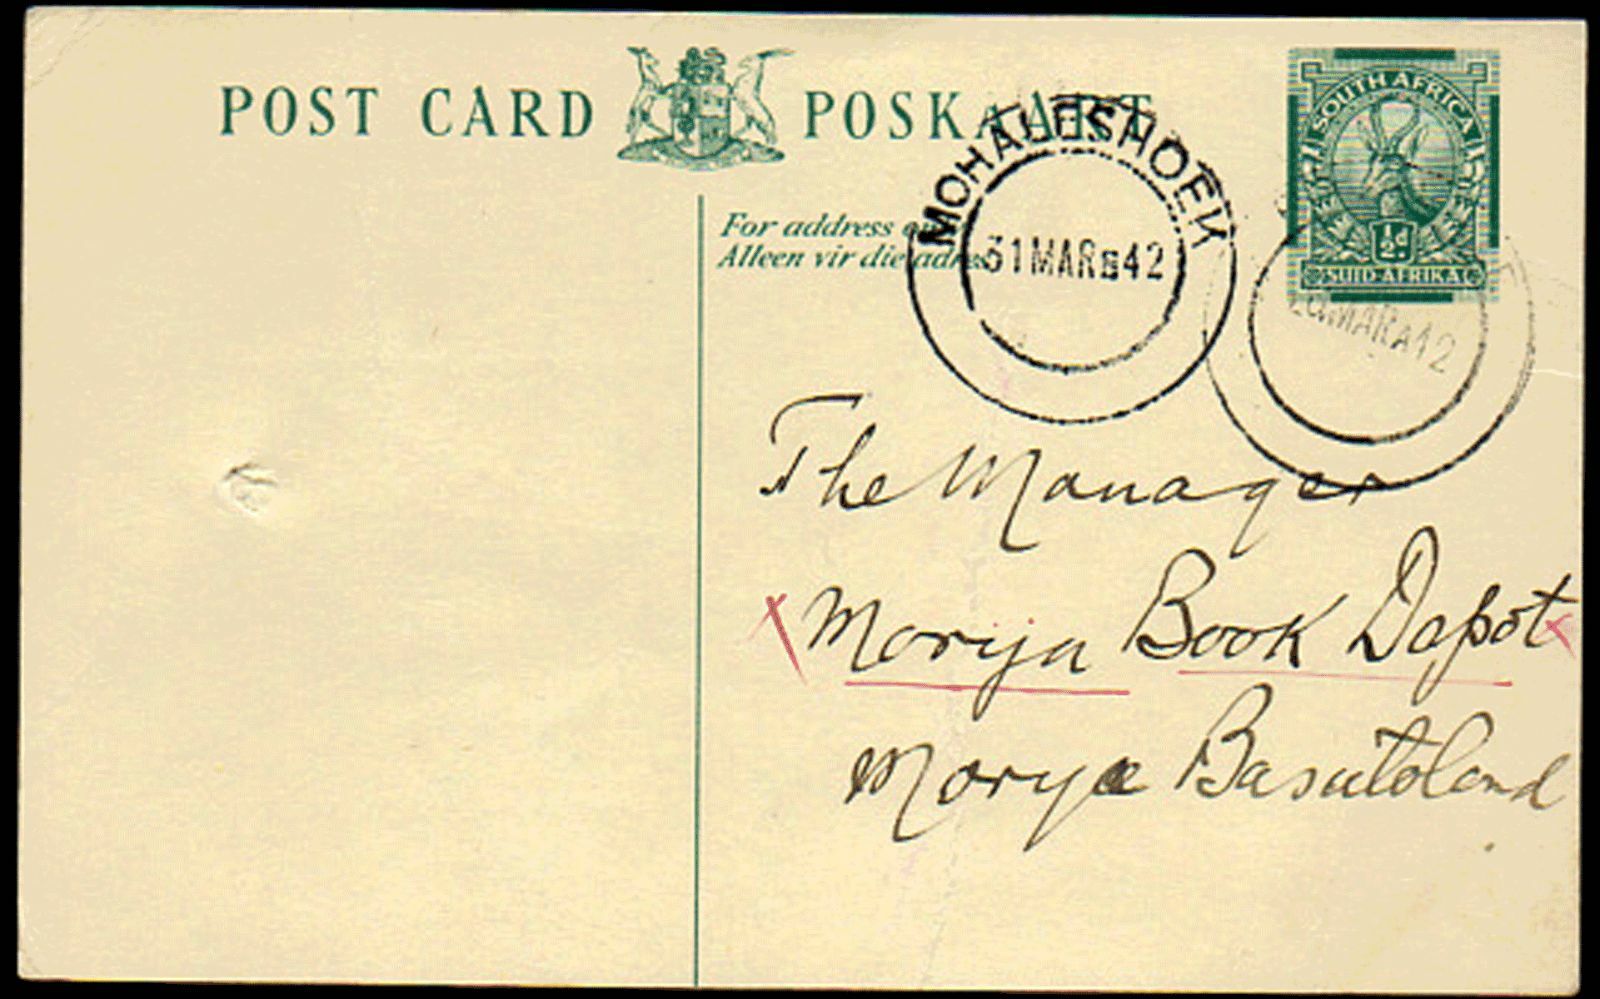 POST CARD POSKAART
SOUTH AFRICA
½d
SUID-AFRIKA
For address
Alleen vir die adres
MOHALESHOEK
31 MAR 42
MAR 42
The Manager
Morija Book Depôt
Morija Basutoland